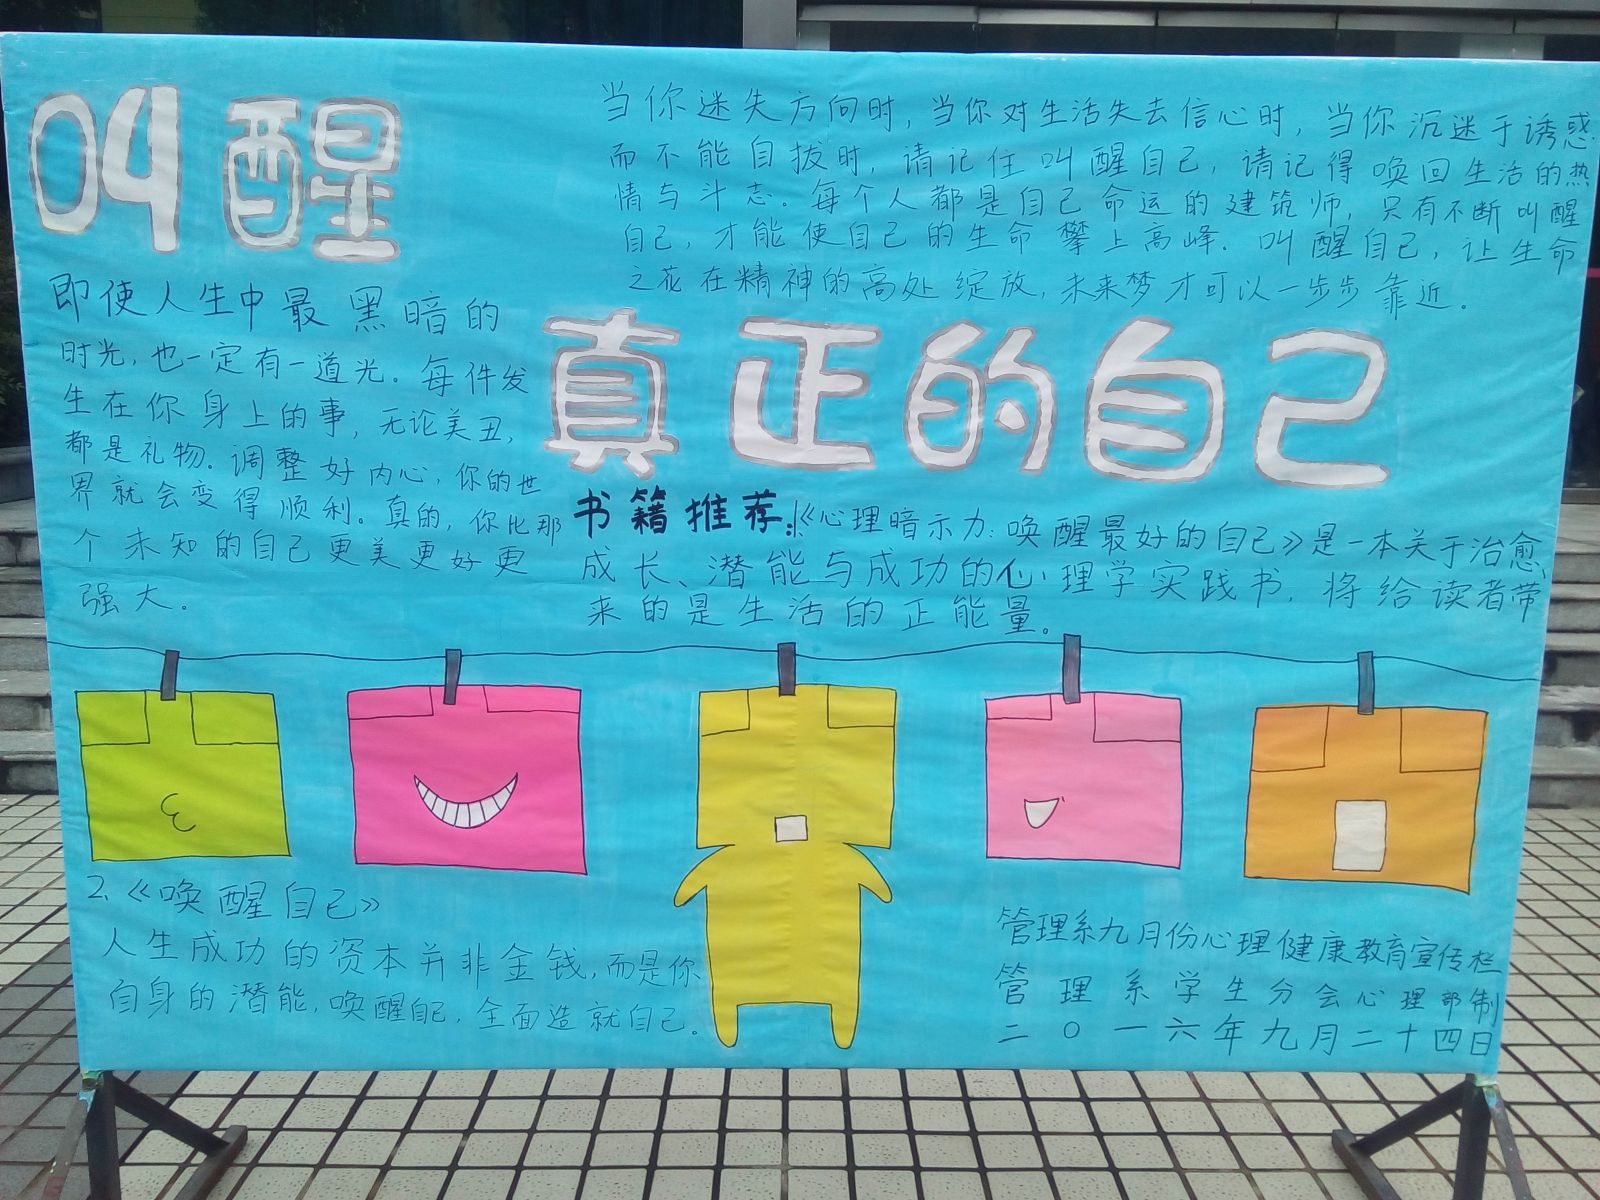 叫醒
当你迷失方向时,当你对生活失去信心时,当你沉迷于诱惑
而不能自拔时,请记住叫醒自己,请记得唤回生活的热
情与斗志。每个人都是自己命运的建筑师,只有不断叫醒
自己,才能使自己的生命攀上高峰.叫醒自己,让生命
之花在精神的高处绽放,未来梦才可以一步步靠近。
即使人生中最黑暗的
时光,也一定有一道光。每件发
生在你身上的事,无论美丑,
都是礼物.调整好内心,你的世
界就会变得顺利。真的,你比那
个未知的自己更美更好更
强大。
真正的自己
书籍推荐:《心理暗示力:唤醒最好的自己》是一本关于治愈、
成长、潜能与成功的心理学实践书,将给读者带
来的是生活的正能量。
2、《唤醒自己》
人生成功的资本并非金钱,而是你
自身的潜能,唤醒自己,全面造就自己。
管理系九月份心理健康教育宣传栏
管理系学生分会心理部制
二〇一六年九月二十四日